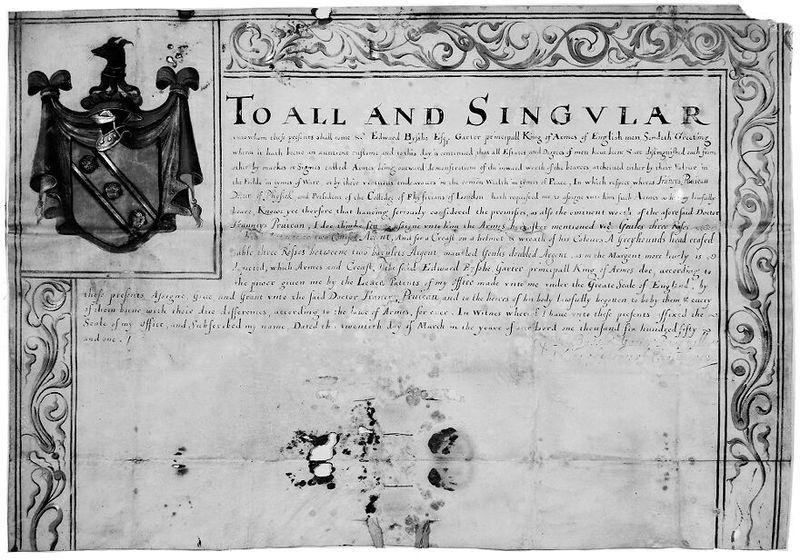 TO ALL AND SINGVLAR
unto whom these presents shall come Edward Bysshe Esqr. Garter principall King of Armes of English men Sendeth Greeting
whereas it hath beene an auntient custome and to this day is continued that all Estates and Degrees of men have been &are distinguished each from
other by markes or Signes called Armes being outward demonstrations of the inward worth of the bearers atcheived either by their Valure in
the Feilds in tymes of Warr or by their vertuous endeavours in the comon Wealth in tymes of Peace; In which respect whereas Francis Prujean
Doctor of Physick and President of the Colledge of Physitians of London hath requested me to assigne unto him such Armes as he may lawfully
beare, Knowe yee therefore that haveing seriously considered the premises, as also the eminent worth of the aforesaid Doctor
Francis Prujean, I doe thinke fitt to assigne unto him the Armes hereafter mentioned Vizt Geules three Roses
Argent, And for a Creast on a helmet & wreath of his Colours A Greyhounds head erased
sable three Roses betweene two bendlets Argent mantled Geules doubled Argent, as in the Margent more lively is
depicted, which Armes and Creast, I the said Edward Bysshe Garter principall King of Armes doe, according to
the power given me by the Letters Patents of my Office made unto me under the Greate Seale of England, by
these presents Assigne, give and Grant unto the said Doctor Francis Prujean and to the heires of his body lawfully begotten to be by them & every
of them borne with their due differences, according to the law of Armes, for ever. In Witnes whereof I have unto these presents affixed the
Seale of my Office, and Subscribed my name. Dated the twentieth day of March in the yeare of our Lord one thousand six hundred fifty
and one.